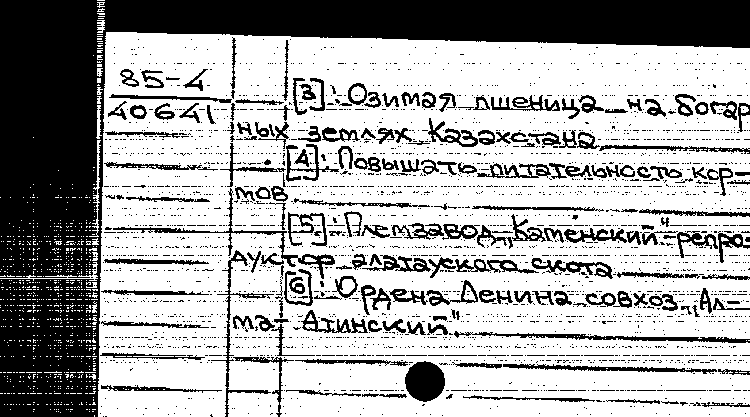 85-4
40641
[3]: Озимая пшеница на богар
ных землях Казахстана.
[4]: Повышать питательность кор-
мов.
[5]: Племзавод „Каменский"-репро-
дуктор алатауского скота.
[6]: Ордена Ленина совхоз „Ал-
ма-Атинский".